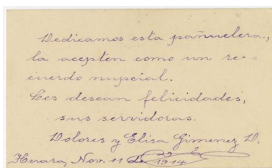 Dedicamos esta pañuelera,
la acepten como un re-
cuerdo nupcial.
Les desean felicidades,
sus servidoras.
Dolores y Elisa Gimenez D.
Nov. 11 de 1914